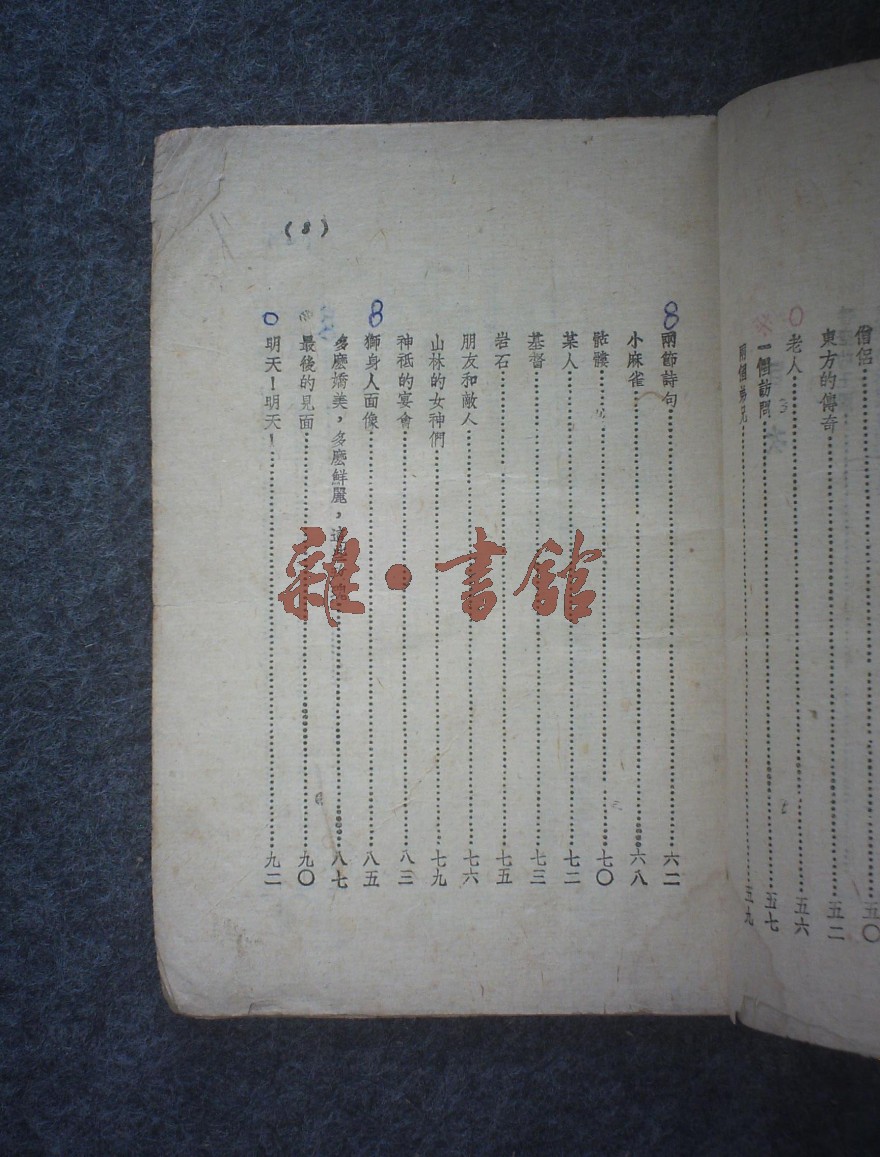 僧侶……五〇
東方的傳奇……五二
老人……五六
一個訪問……五七
兩個弟兄……五九
(8)
兩節詩句……六二
小麻雀……六八
骷髏……七〇
某人……七二
基督……七三
岩石……七五
朋友和敵人……七六
山林的女神們……七九
神祗的宴會……八三
獅身人面像……八五
多麽嬌美，多麽鮮麗，……八七
最後的見面……九〇
明天！明天！……九二
雜·書館